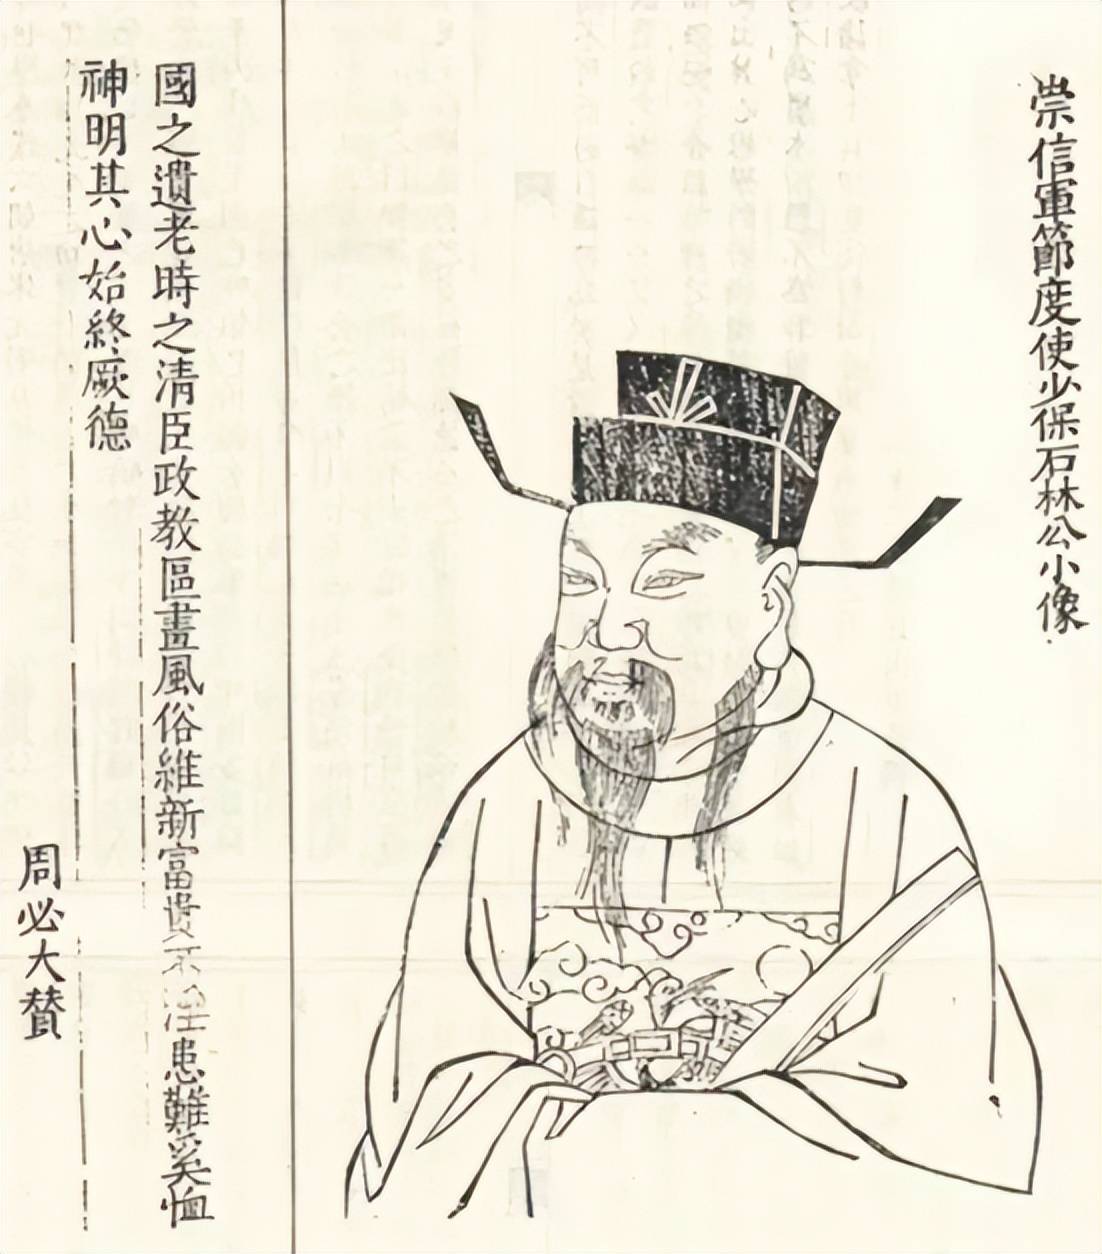 崇信軍節度使少保石林公小像
國之遺老時之清臣政教區畫風俗維新富貴不淫患難奚恤
神明其心始終厥德
周必大贊